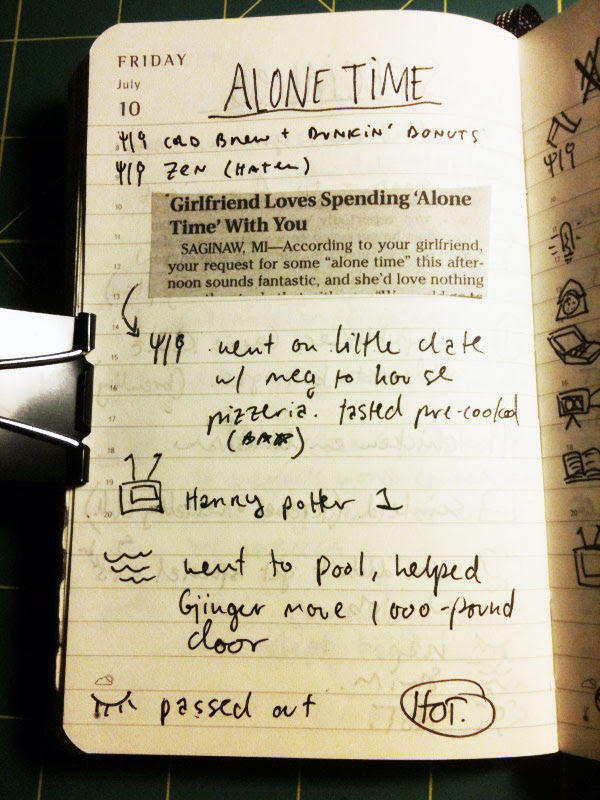 FRIDAY
July
10
ALONE TIME
COLD BREW + DUNKIN' DONUTS
ZEN (HATEN)
Girlfriend Loves Spending 'Alone
Time' With You
SAGINAW, MI—According to your girlfriend,
your request for some "alone time" this after-
noon sounds fantastic, and she'd love nothing
went on little date
w/ meg to house
pizzeria. tasted pre-cooked
Harry potter 1
went to pool, helped
Ginger move 1000-pound
door
passed out
HOT.